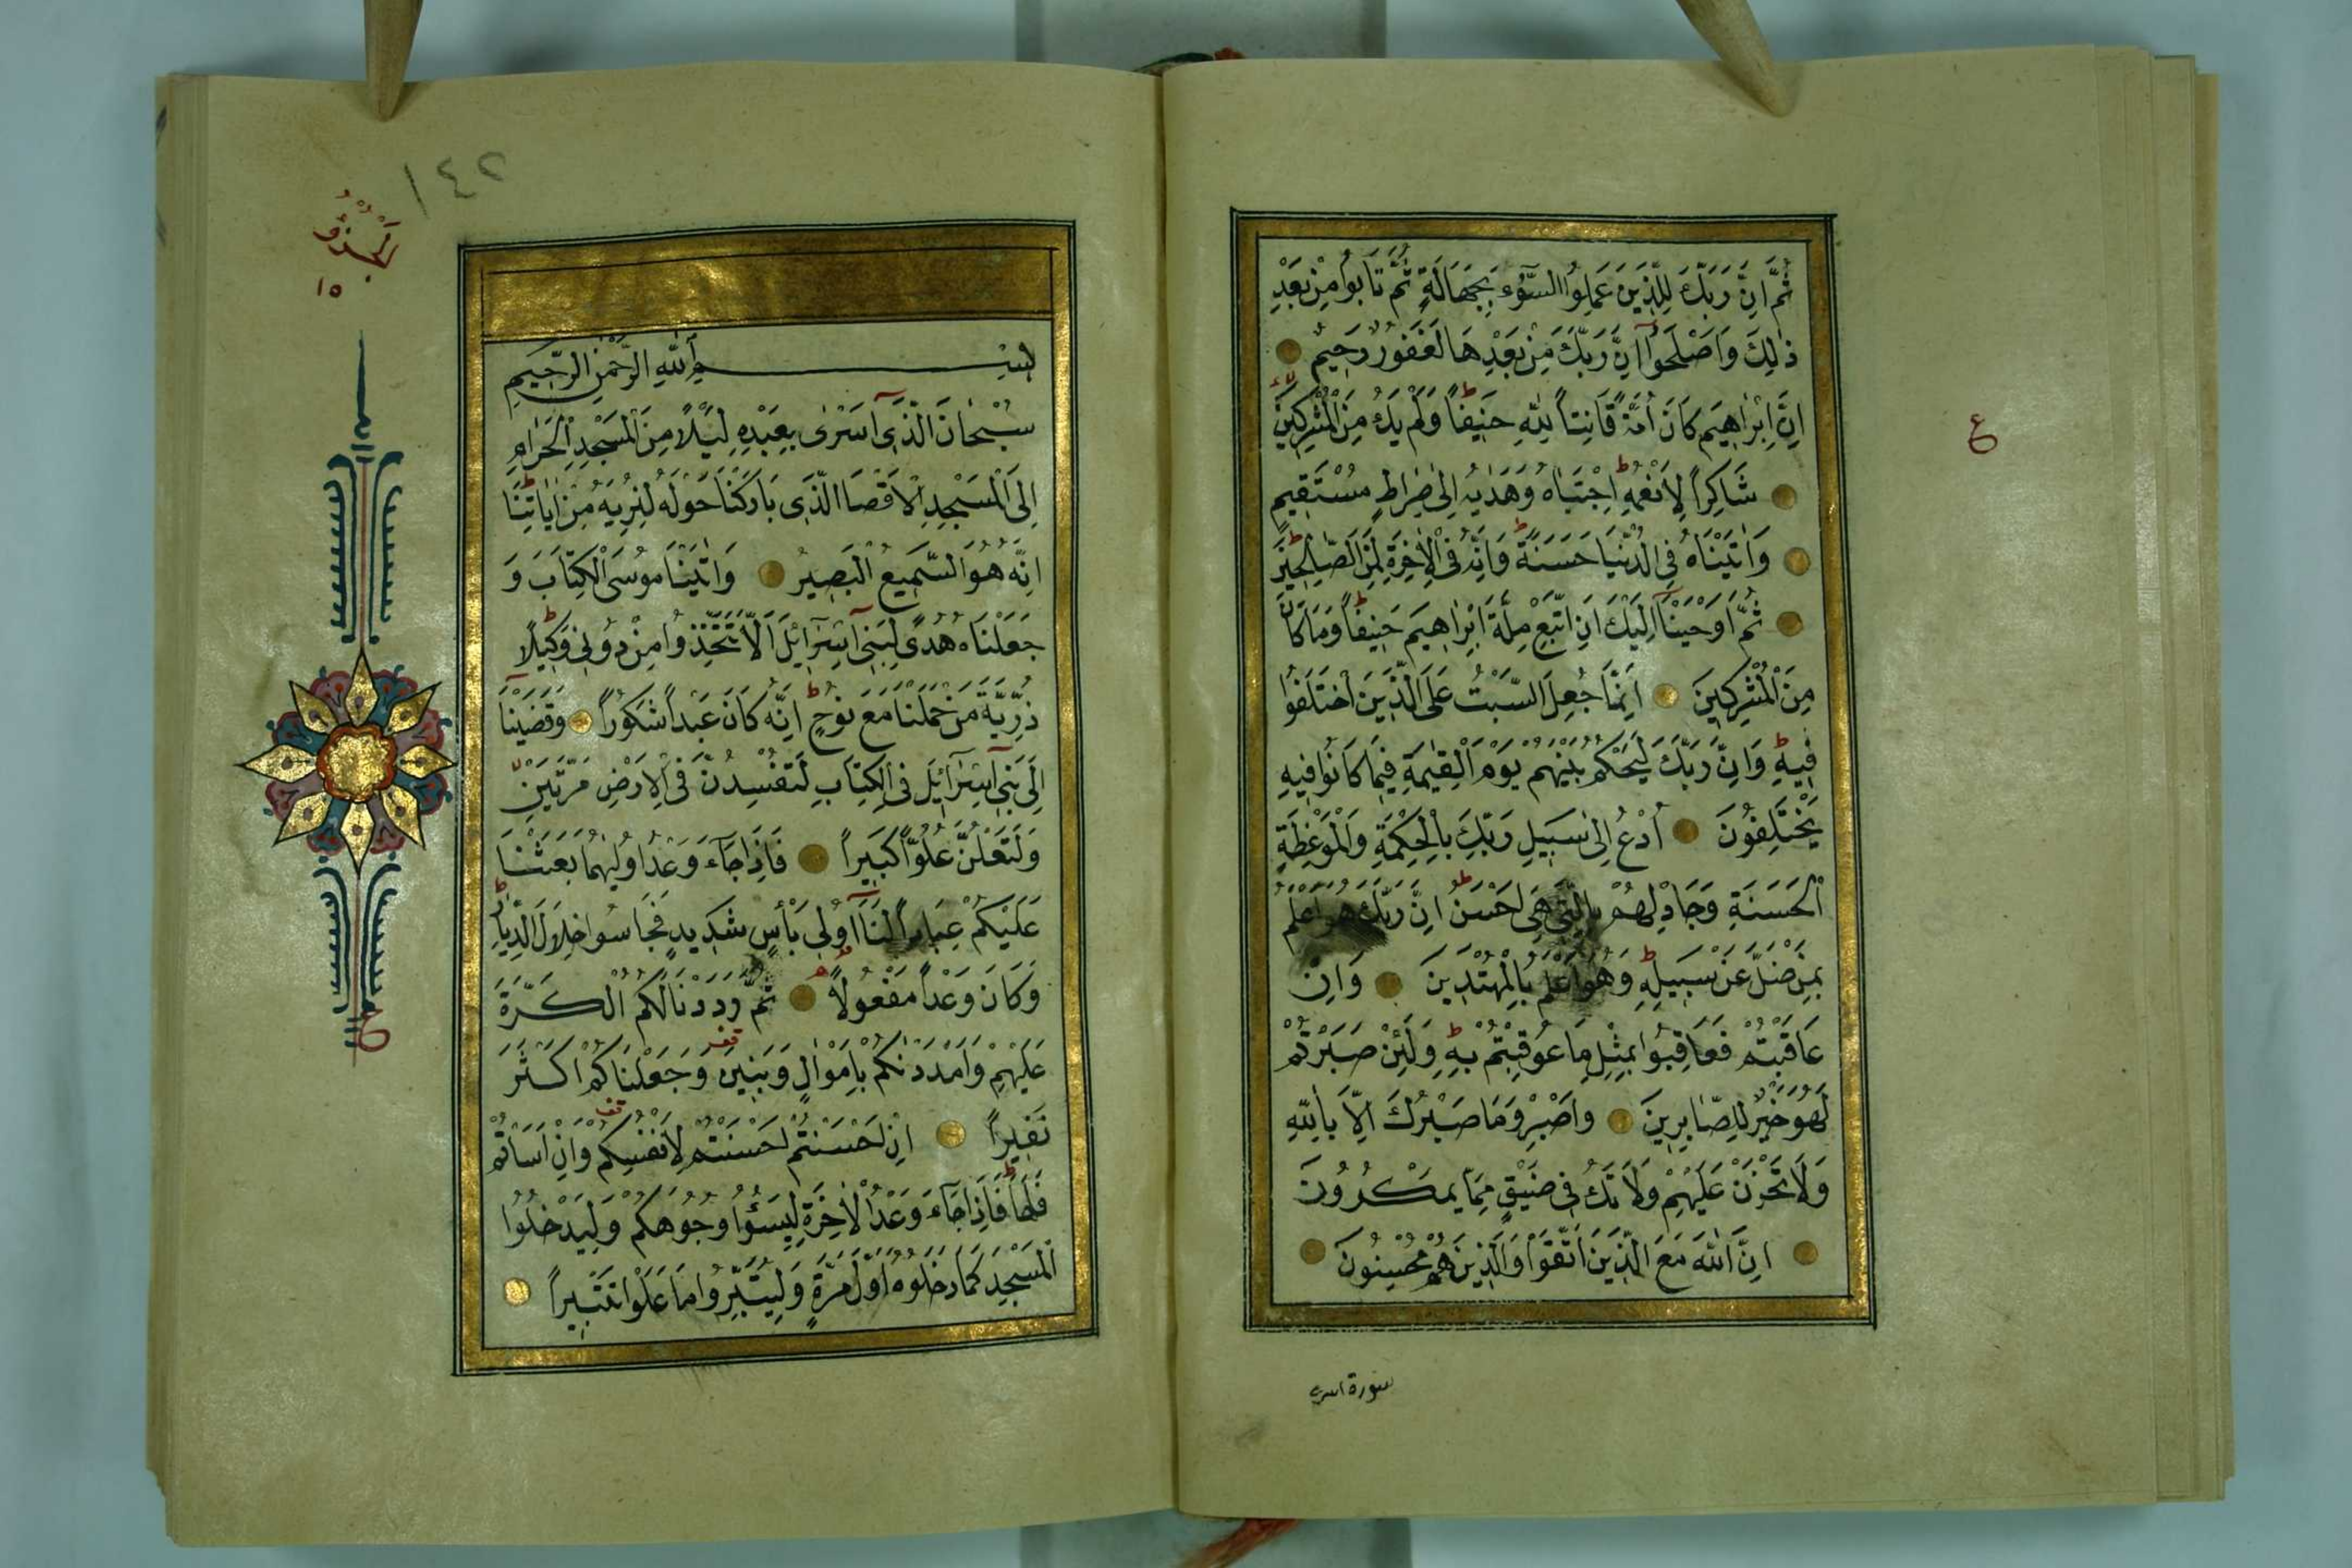 ثُمَّ اِنَّ رَبَّكَ لِلَّذِينَ عَمِلُوا السُّوٓءَ بِجَهَالَةٍ ثُمَّ تَابُوا مِنْ بَعْدِ
ذٰلِكَ وَاَصْلَحُوٓا اِنَّ رَبَّكَ مِنْ بَعْدِهَا لَغَفُورٌ رَحِيمٌ
اِنَّ اِبْرٰاهِيمَ كَانَ اُمَّةً قَانِتاً لِلّٰهِ حَنِيفاً وَلَمْ يَكُ مِنَ الْمُشْرِكِينَ
شَاكِراً لِاَنْعُمِهِ اِجْتَبٰاهُ وَهَدٰيهُ اِلىٰ صِرَاطٍ مُسْتَقِيمٍ
وَاٰتَيْنَاهُ فِى الدُّنْيَا حَسَنَةً وَاِنَّهُ فِى الْاٰخِرَةِ لَمِنَ الصَّالِحِينَ
ثُمَّ اَوْحَيْنَٓا اِلَيْكَ اَنِ اتَّبِعْ مِلَّةَ اِبْرٰاهِيمَ حَنِيفاً وَمَا كَانَ
مِنَ الْمُشْرِكِينَ اِنَّمَا جُعِلَ السَّبْتُ عَلَى الَّذِينَ اخْتَلَفُوا
فِيهِ وَاِنَّ رَبَّكَ لَيَحْكُمُ بَيْنَهُمْ يَوْمَ الْقِيٰمَةِ فِيمَا كَانُوا فِيهِ
يَخْتَلِفُونَ اُدْعُ اِلىٰ سَبِيلِ رَبِّكَ بِالْحِكْمَةِ وَالْمَوْعِظَةِ
الْحَسَنَةِ وَجَادِلْهُمْ بِالَّتِى هِىَ اَحْسَنُ اِنَّ رَبَّكَ هُوَ اَعْلَمُ
بِمَنْ ضَلَّ عَنْ سَبِيلِهِ وَهُوَ اَعْلَمُ بِالْمُهْتَدِينَ وَاِنْ
عَاقَبْتُمْ فَعَاقِبُوا بِمِثْلِ مَا عُوقِبْتُمْ بِهِ وَلَئِنْ صَبَرْتُمْ
لَهُوَ خَيْرٌ لِلصَّابِرِينَ وَاصْبِرْ وَمَا صَبْرُكَ اِلَّا بِاللّٰهِ
وَلَا تَحْزَنْ عَلَيْهِمْ وَلَا تَكُ فِى ضَيْقٍ مِمَّا يَمْكُرُونَ
اِنَّ اللّٰهَ مَعَ الَّذِينَ اتَّقَوْا وَالَّذِينَ هُمْ مُحْسِنُونَ
ع
١٤٢
اَلْجُزْؤُ
١٥
بِسْمِ اللّٰهِ الرَّحْمٰنِ الرَّحِيمِ
سُبْحَانَ الَّذِٓى اَسْرٰى بِعَبْدِهِ لَيْلاً مِنَ الْمَسْجِدِ الْحَرَامِ
اِلَى الْمَسْجِدِ الْاَقْصَا الَّذِى بَارَكْنَا حَوْلَهُ لِنُرِيَهُ مِنْ اٰيَاتِنَا
اِنَّهُ هُوَ السَّمِيعُ الْبَصِيرُ وَاٰتَيْنَا مُوسَى الْكِتَابَ وَ
جَعَلْنَاهُ هُدًى لِبَنِٓى اِسْرَٓائِلَ اَلَّا تَتَّخِذُوا مِنْ دُونِى وَكِيلاً
ذُرِّيَّةَ مَنْ حَمَلْنَا مَعَ نُوحٍ اِنَّهُ كَانَ عَبْداً شَكُوراً وَقَضَيْنَٓا
اِلىٰ بَنِٓى اِسْرَٓائِلَ فِى الْكِتَابِ لَتُفْسِدُنَّ فِى الْاَرْضِ مَرَّتَيْنِ
وَلَتَعْلُنَّ عُلُوّاً كَبِيراً فَاِذَا جَٓاءَ وَعْدُ اُولٰيهُمَا بَعَثْنَا
عَلَيْكُمْ عِبَاداً لَنَٓا اُولِى بَأْسٍ شَدِيدٍ فَجَاسُوا خِلَالَ الدِّيَارِ
وَكَانَ وَعْداً مَفْعُولاً ثُمَّ رَدَدْنَا لَكُمُ الْكَرَّةَ
عَلَيْهِمْ وَاَمْدَدْنَاكُمْ بِاَمْوَالٍ وَبَنِينَ وَجَعَلْنَاكُمْ اَكْثَرَ
نَفِيراً اِنْ اَحْسَنْتُمْ اَحْسَنْتُمْ لِاَنْفُسِكُمْ وَاِنْ اَسَأْتُمْ
فَلَهَا فَاِذَا جَٓاءَ وَعْدُ الْاٰخِرَةِ لِيَسُٓؤُا وُجُوهَكُمْ وَلِيَدْخُلُوا
الْمَسْجِدَ كَمَا دَخَلُوهُ اَوَّلَ مَرَّةٍ وَلِيُتَبِّرُوا مَا عَلَوْا تَتْبِيراً